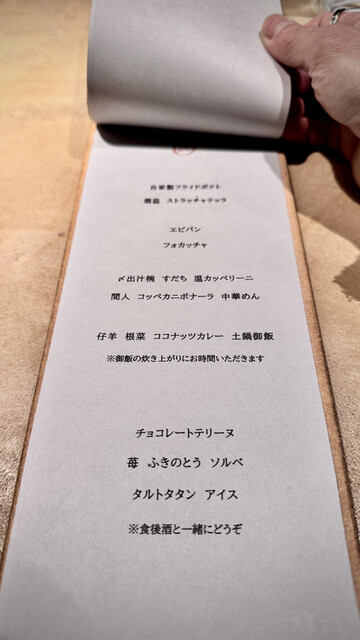 自家製フライドポテト
酒盗 ストラッチャテッラ
エビパン
フォカッチャ
〆出汁椀 すだち 温カッペリーニ
間人 コッペカニボナーラ 中華めん
仔羊 根菜 ココナッツカレー 土鍋御飯
※御飯の炊き上がりにお時間いただきます
チョコレートテリーヌ
苺 ふきのとう ソルベ
タルトタタン アイス
※食後酒と一緒にどうぞ